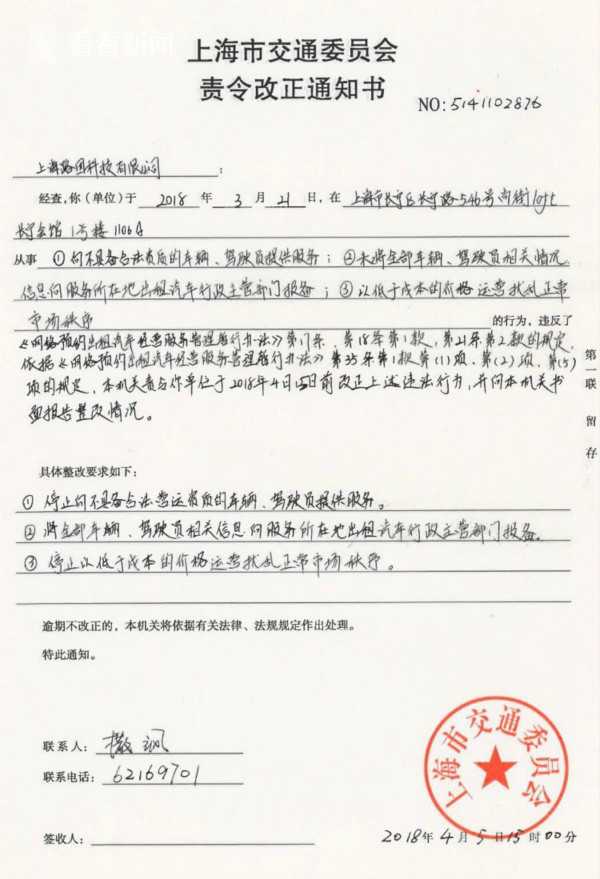 看看新闻
上海市交通委员会
责令改正通知书
NO: 5141102876
上海路团科技有限公司：
经查，你（单位）于 2018 年 3 月 21 日，在 上海市长宁区长宁路546号尚街loft
长宁会馆 1号楼 1106A
从事 ①向不具备合法资质的车辆、驾驶员提供服务；②未将全部车辆、驾驶员相关情况
信息向服务所在地出租汽车行政主管部门报备；③以低于成本的价格运营扰乱正常
市场秩序 的行为，违反了
《网络预约出租汽车经营服务管理暂行办法》第17条、第18条第1款、第21条第2款的规定，
依据《网络预约出租汽车经营服务管理暂行办法》第35条第1款第(1)项、第(2)项、第(5)
项的规定，本机关责令你单位于2018年4月15日前改正上述违法行为，并向本机关书
面报告整改情况。
第一联 留存
具体整改要求如下：
①停止向不具备合法营运资质的车辆、驾驶员提供服务。
②将全部车辆、驾驶员相关信息向服务所在地出租汽车行政主管部门报备。
③停止以低于成本的价格运营扰乱正常市场秩序。
逾期不改正的，本机关将依据有关法律、法规规定作出处理。
特此通知。
联系人：
联系电话：62169701
上海市交通委员会
签收人：
2018年 4 月 5 日 15 时 00 分